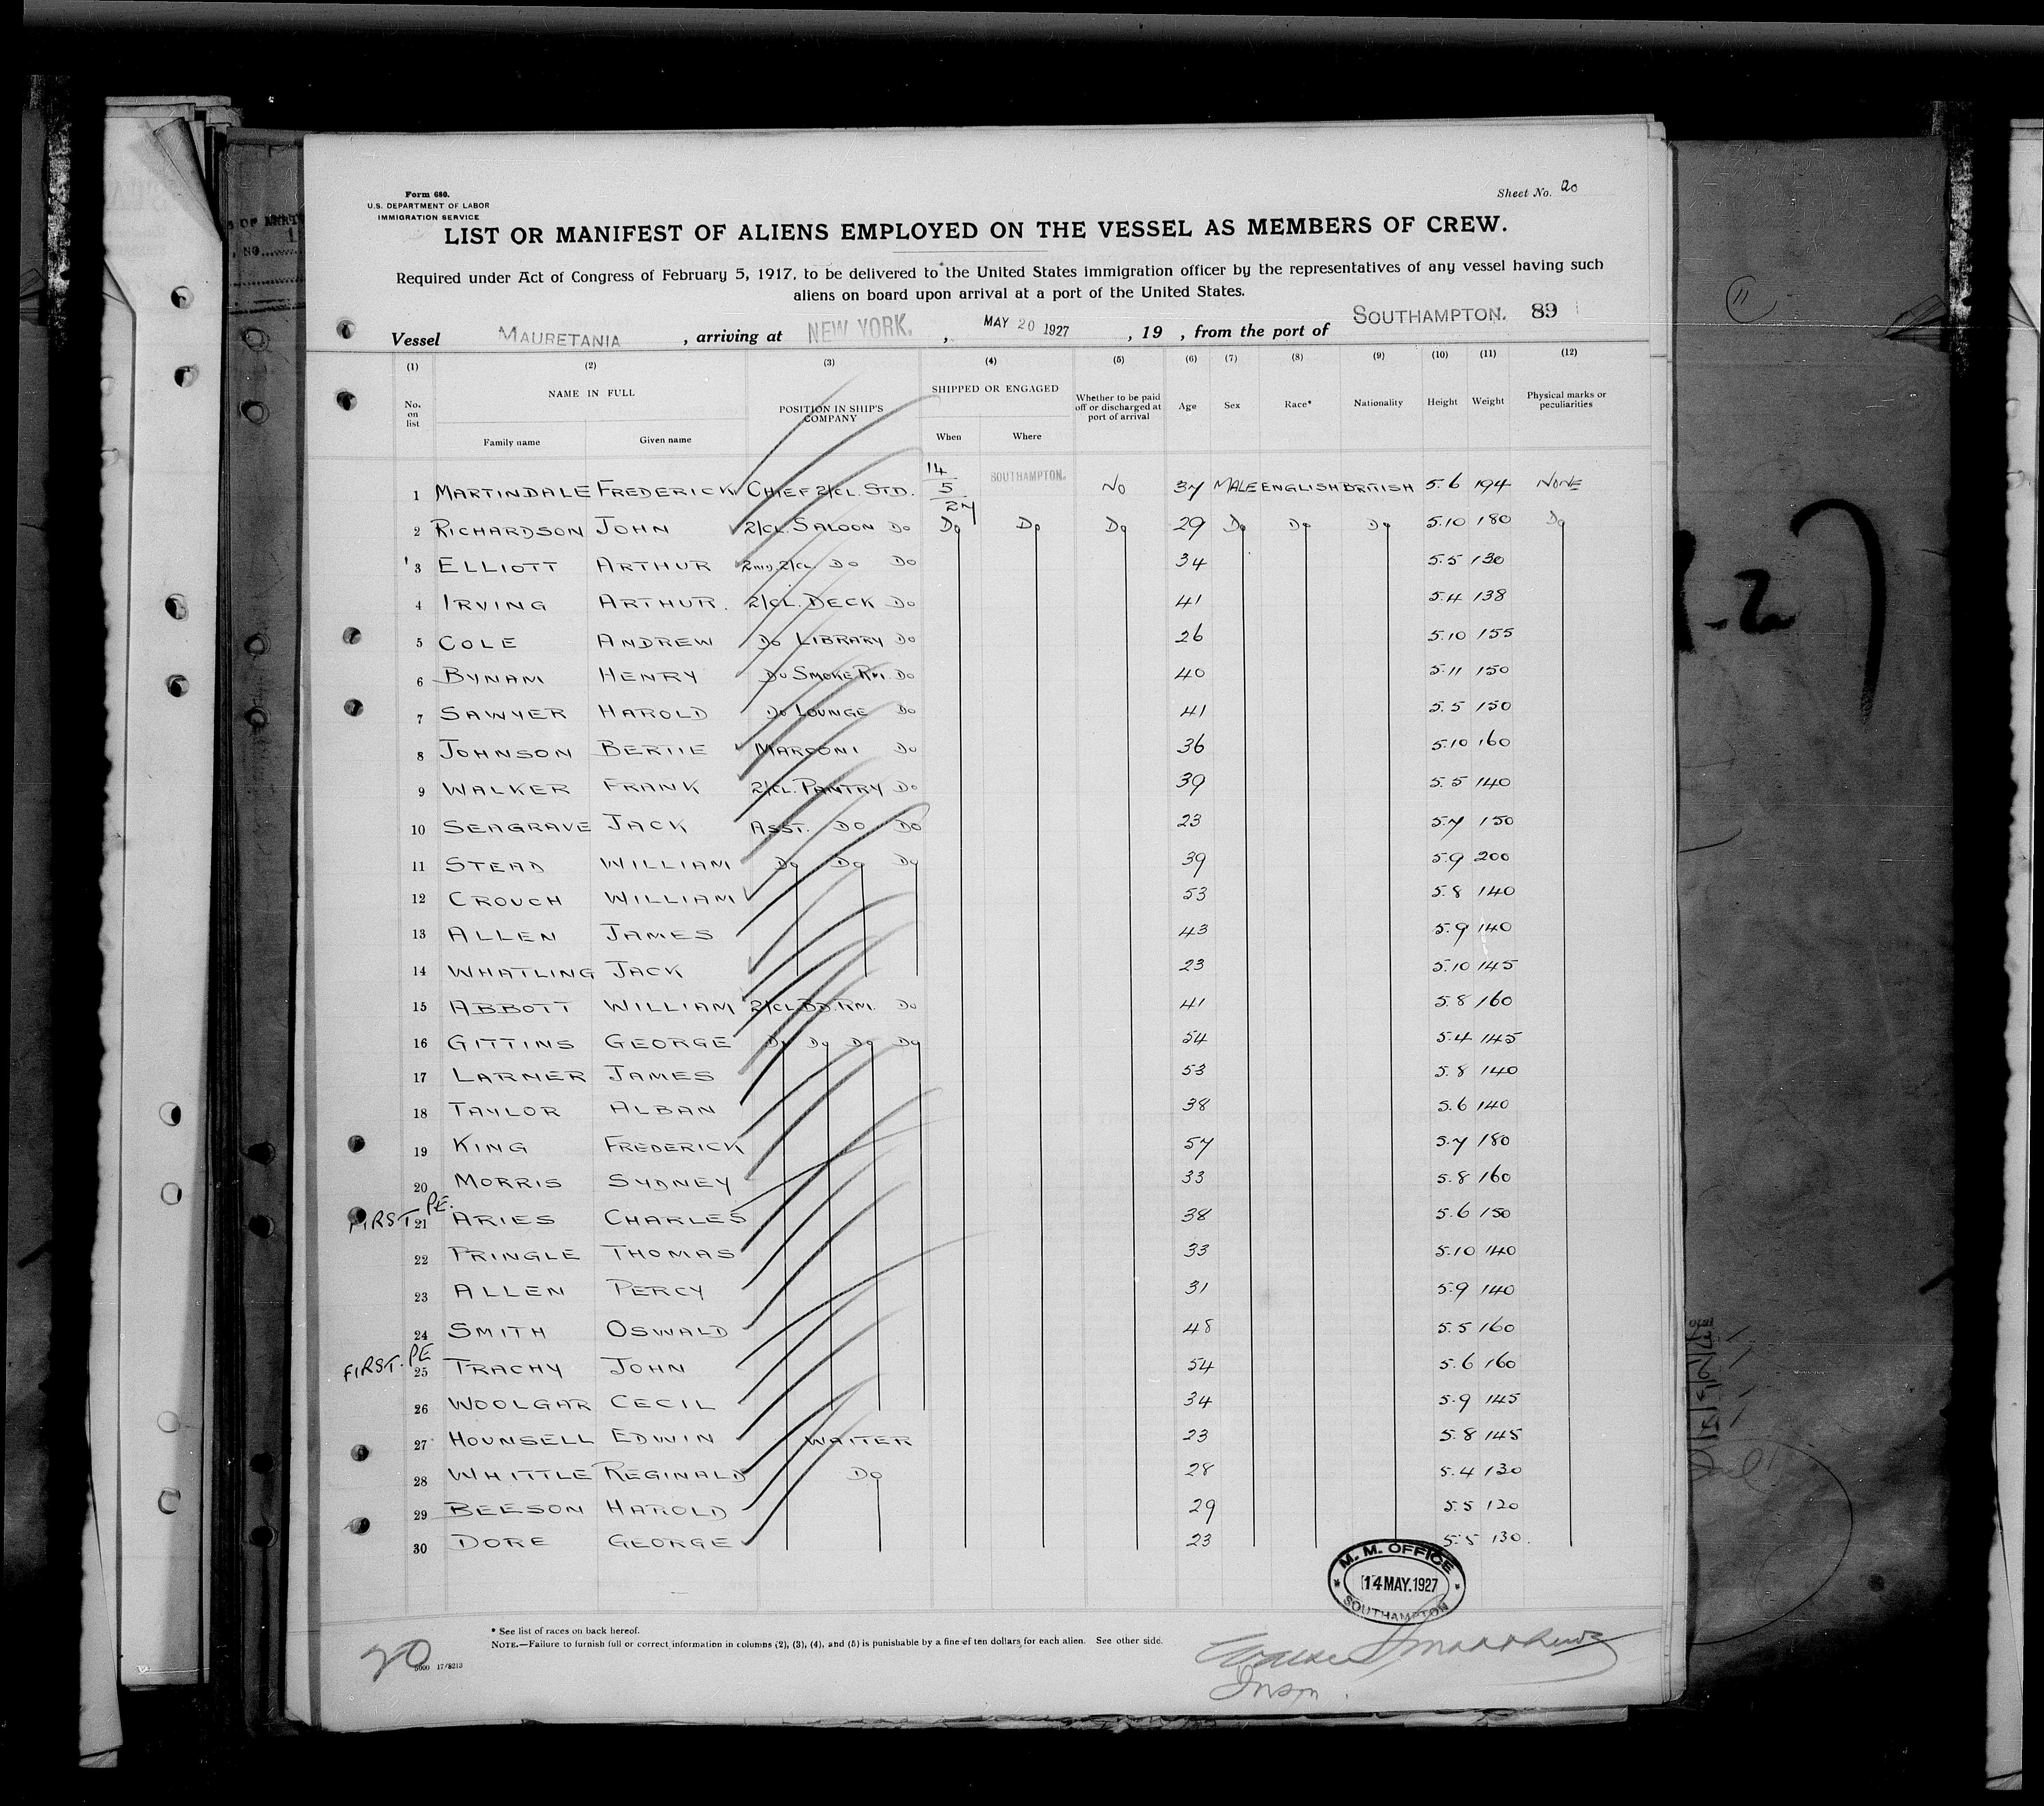 Form 680.
U.S. DEPARTMENT OF LABOR
IMMIGRATION SERVICE
Sheet No. 20
LIST OR MANIFEST OF ALIENS EMPLOYED ON THE VESSEL AS MEMBERS OF CREW.
Required under Act of Congress of February 5, 1917, to be delivered to the United States immigration officer by the representatives of any vessel having such
aliens on board upon arrival at a port of the United States.
Vessel MAURETANIA , arriving at NEW YORK. , MAY 20 1927 , 19 , from the port of SOUTHAMPTON. 89
(1) (2) (3) (4) (5) (6) (7) (8) (9) (10) (11) (12)
No. on list NAME IN FULL Family name Given name POSITION IN SHIP'S COMPANY SHIPPED OR ENGAGED When Where Whether to be paid off or discharged at port of arrival Age Sex Race* Nationality Height Weight Physical marks or peculiarities
1 MARTINDALE FREDERICK CHIEF 2/CL. STD. 14/5/27 SOUTHAMPTON. NO 37 MALE ENGLISH BRITISH 5.6 194 NONE
2 RICHARDSON JOHN 2/CL. SALOON DO DO DO DO 29 DO DO DO 5.10 180 DO
3 ELLIOTT ARTHUR 2ND. 2/CL. DO DO 34 5.5 130
4 IRVING ARTHUR. 2/CL. DECK DO 41 5.4 138
5 COLE ANDREW DO LIBRARY DO 26 5.10 155
6 BYNAM HENRY DO SMOKE RM. DO 40 5.11 150
7 SAWYER HAROLD DO LOUNGE DO 41 5.5 150
8 JOHNSON BERTIE MARCONI DO 36 5.10 160
9 WALKER FRANK 2/CL. PANTRY DO 39 5.5 140
10 SEAGRAVE JACK ASST. DO DO 23 5.7 150
11 STEAD WILLIAM DO DO DO 39 5.9 200
12 CROUCH WILLIAM 53 5.8 140
13 ALLEN JAMES 43 5.9 140
14 WHATLING JACK 23 5.10 145
15 ABBOTT WILLIAM 2/CL. BD. RM. DO 41 5.8 160
16 GITTINS GEORGE DO DO DO DO 54 5.4 145
17 LARNER JAMES 53 5.8 140
18 TAYLOR ALBAN 38 5.6 140
19 KING FREDERICK 57 5.7 180
20 MORRIS SYDNEY 33 5.8 160
FIRST PE. 21 ARIES CHARLES 38 5.6 150
22 PRINGLE THOMAS 33 5.10 140
23 ALLEN PERCY 31 5.9 140
24 SMITH OSWALD 48 5.5 160
FIRST. PE 25 TRACHY JOHN 54 5.6 160
26 WOOLGAR CECIL 34 5.9 145
27 HOUNSELL EDWIN WAITER 23 5.8 145
28 WHITTLE REGINALD DO 28 5.4 130
29 BEESON HAROLD 29 5.5 120
30 DORE GEORGE 23 5.5 130.
M. M. OFFICE
14 MAY. 1927
SOUTHAMPTON
* See list of races on back hereof.
NOTE.—Failure to furnish full or correct information in columns (2), (3), (4), and (5) is punishable by a fine of ten dollars for each alien. See other side.
20
Insp.